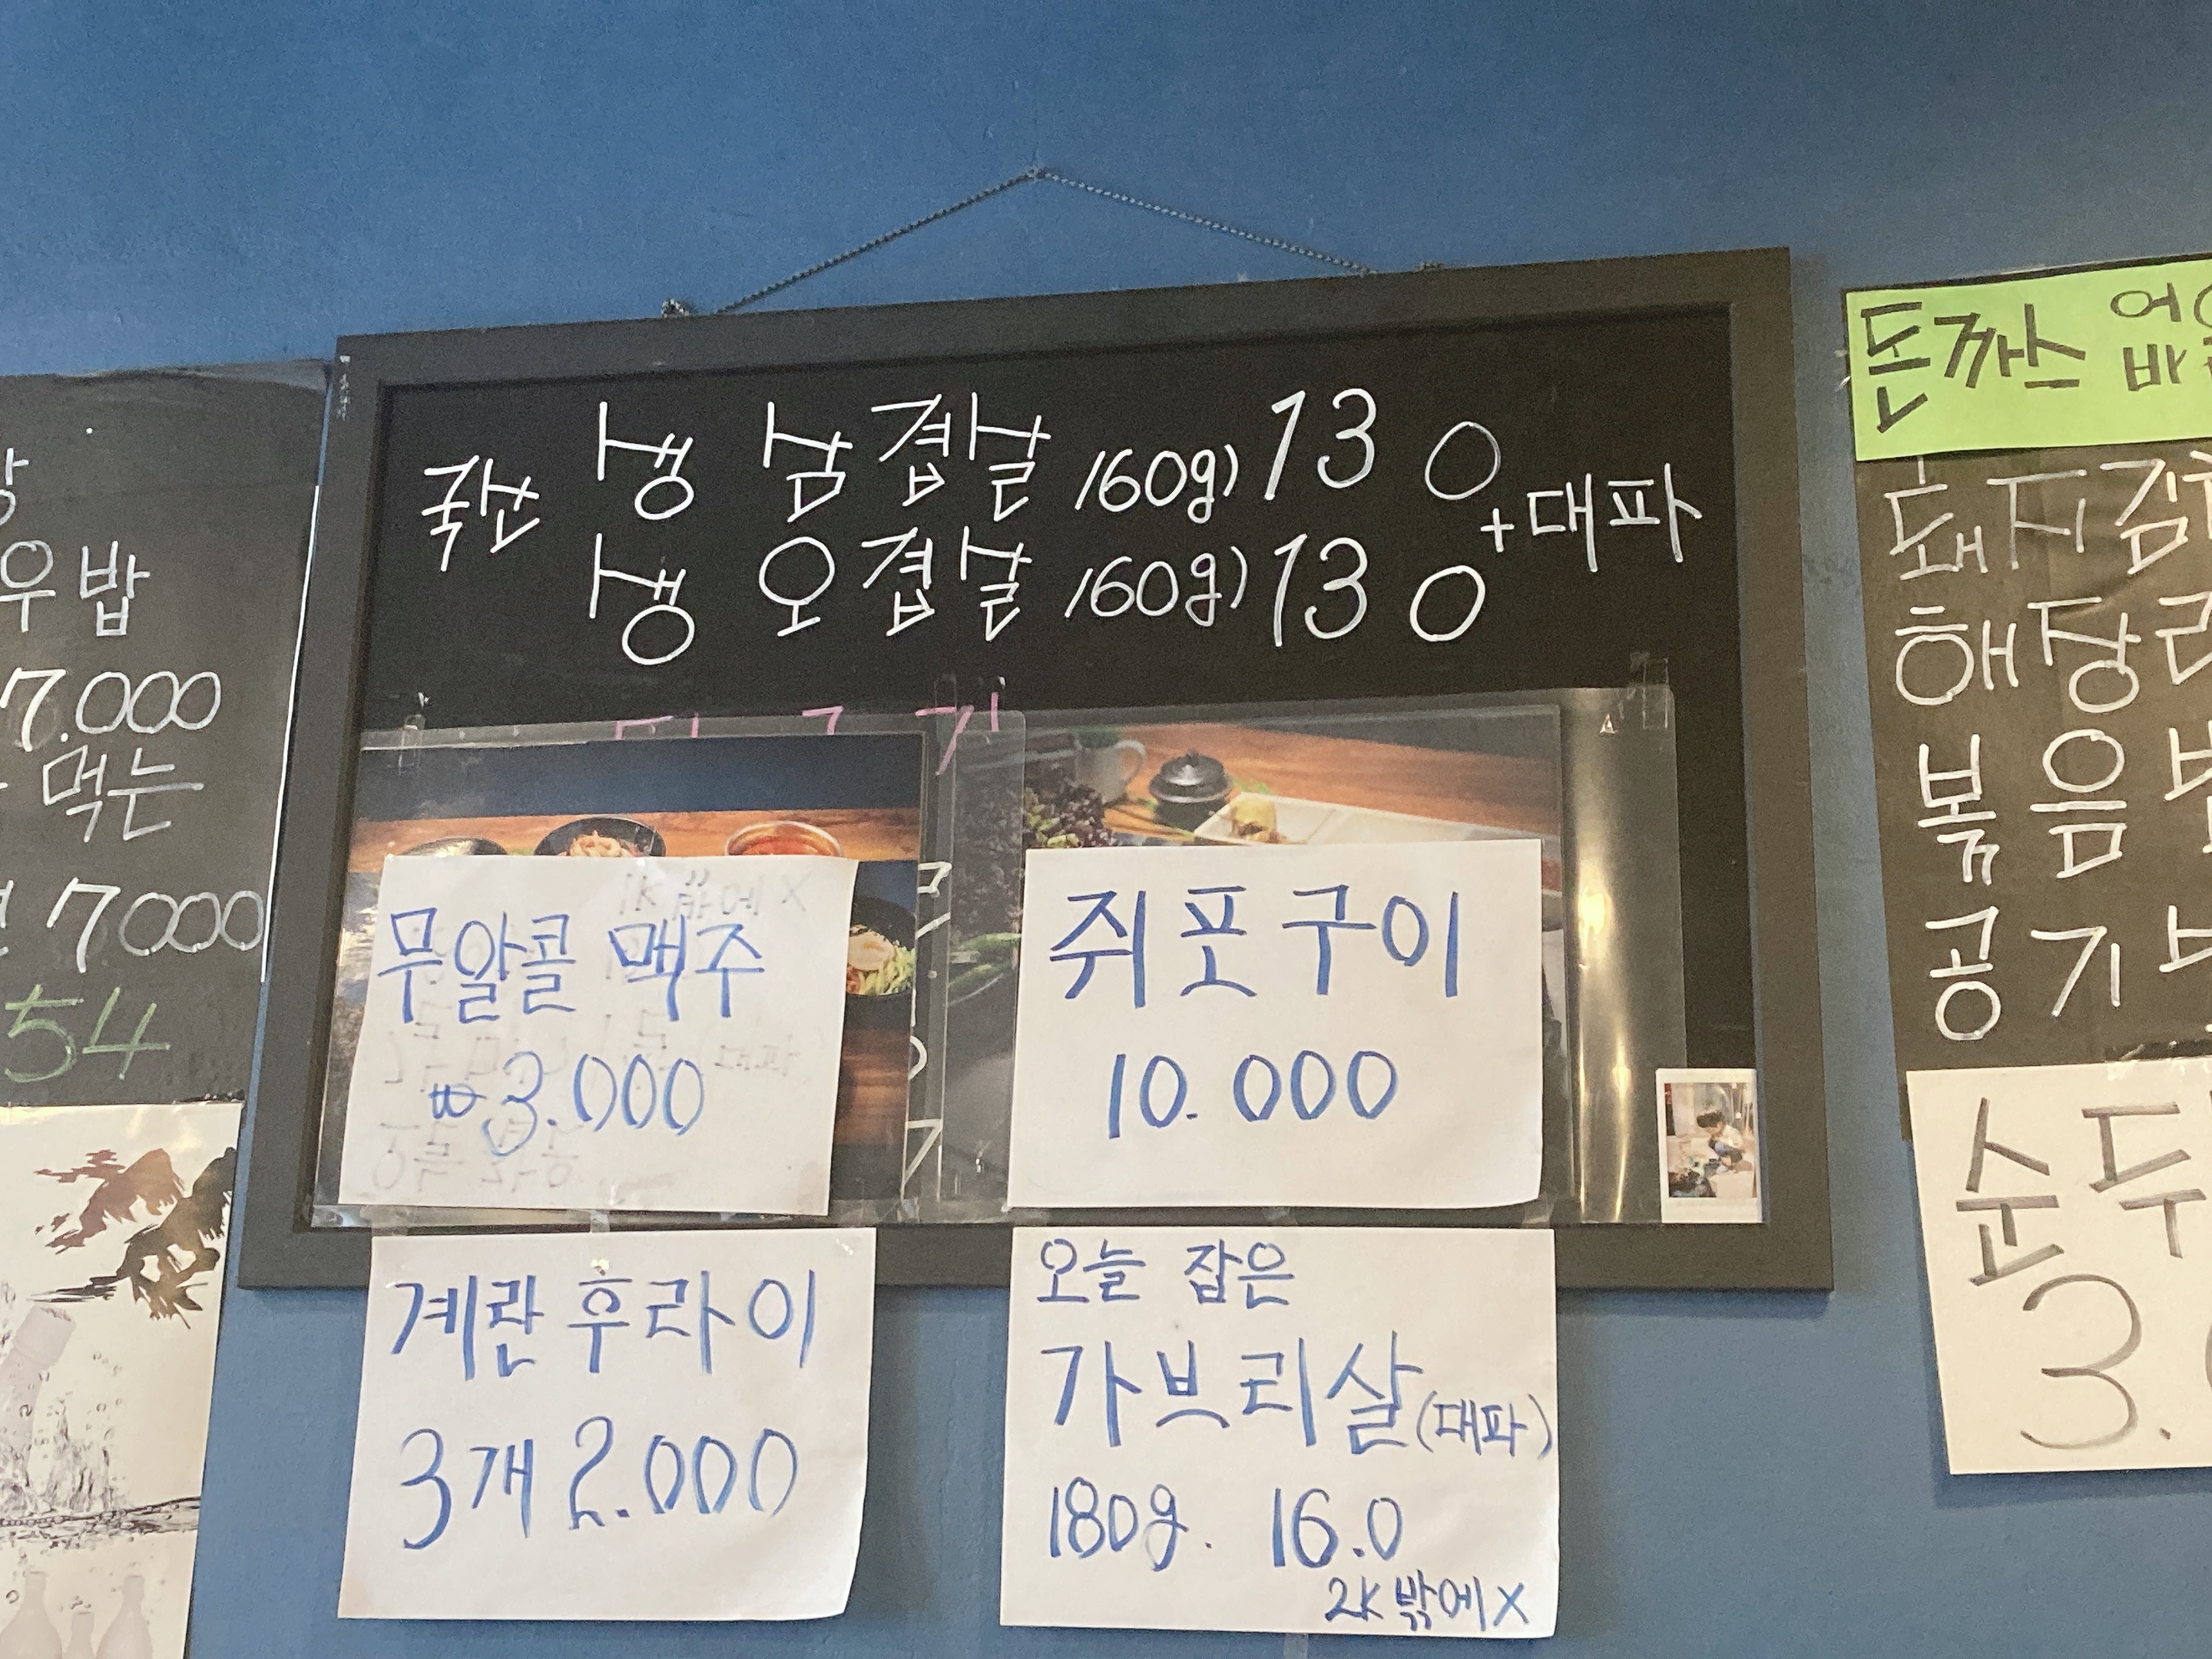 우밥
7.000
먹는
7000
54
국산 생 삼겹살 160g) 13 0
생 오겹살 160g) 13 0
+대파
무알콜 맥주
₩3.000
쥐포구이
10.000
계란후라이
3개 2.000
오늘 잡은
가브리살(대파)
180g. 16.0
2K 밖에 X
돈까스
돼지김
해장라
볶음밥
공기
순두
3.